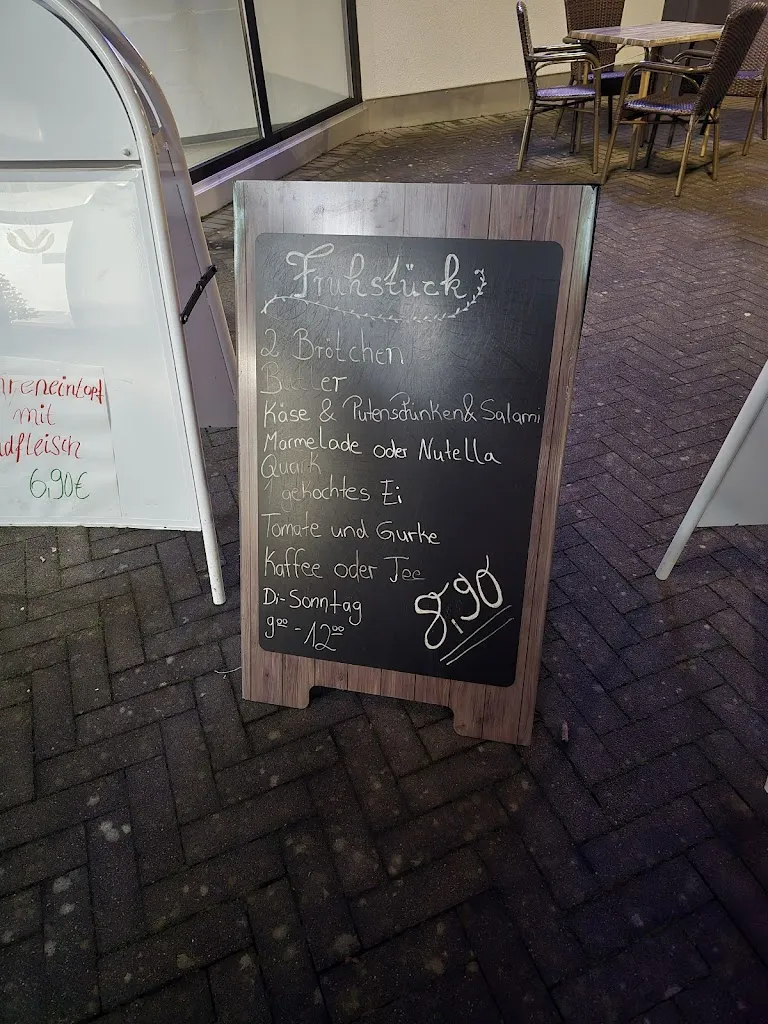 Frühstück
2 Brötchen
Butter
Käse & Putenschinken & Salami
Marmelade oder Nutella
Quark
1 gekochtes Ei
Tomate und Gurke
Kaffee oder Tee
Di-Sonntag
9⁰⁰ - 12⁰⁰
8,90
hreneintopf
mit
ndfleisch
6,90€